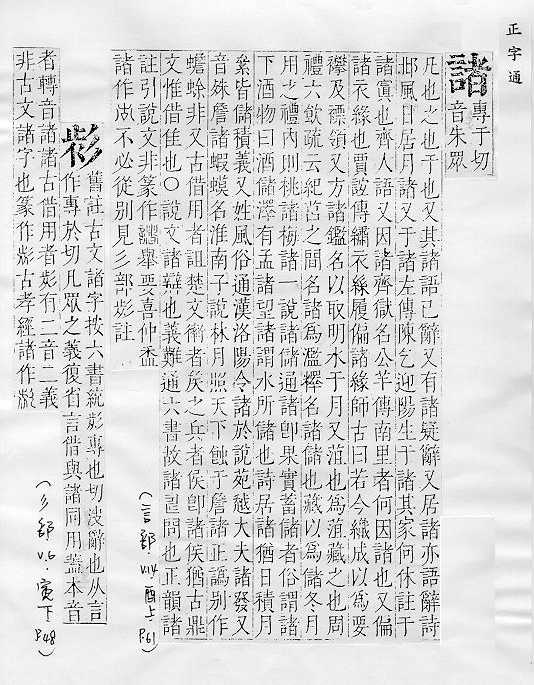 正字通
諸
專于切
音朱眾
凡也之也于也又其諸語已辭又有諸疑辭又居諸亦語辭詩
邶風日居月諸又于諸左傳陳乞迎陽生于諸其家何休註于
諸寘也齊人語又因諸齊獄名公羊傳南里者何因諸也又偏
諸衣緣也賈誼傳繡衣絲履偏諸緣師古曰若今織成以為要
襻及褾領又方諸鑑名以取明水于月又菹也為菹藏之也周
禮六飲疏云紀莒之間名諸為濫釋名諸儲也藏以為儲冬月
用之禮內則桃諸梅諸一說諸儲通諸卽果實蓄儲者俗謂諸
下酒物曰酒儲澤有孟諸望諸謂水所儲也詩居諸猶日積月
絫皆儲積義又姓風俗通漢洛陽令諸於說苑越大夫諸發又
音殊詹諸蝦蟆名淮南子說林月照天下蝕于詹諸正譌別作
蟾蜍非又古借用者詛楚文衛者矦之兵者侯卽諸侯猶古鼎
文惟借隹也○說文諸辯也義難通六書故諸問也正韻諸
註引說文非篆作舉要喜仲盉
諸作𣥐不必從別見彡部㣋註
㣋
舊註古文諸字按六書統㣋專也切決辭也从言
作專於切凡眾之義復省言借與諸同用蓋本音
者轉音諸諸古借用者㣋有二音二義
非古文諸字也篆作㣋古孝經諸作
(言部 V.14. 酉上 P.61)
(彡部 V.6. 寅下 P.48)